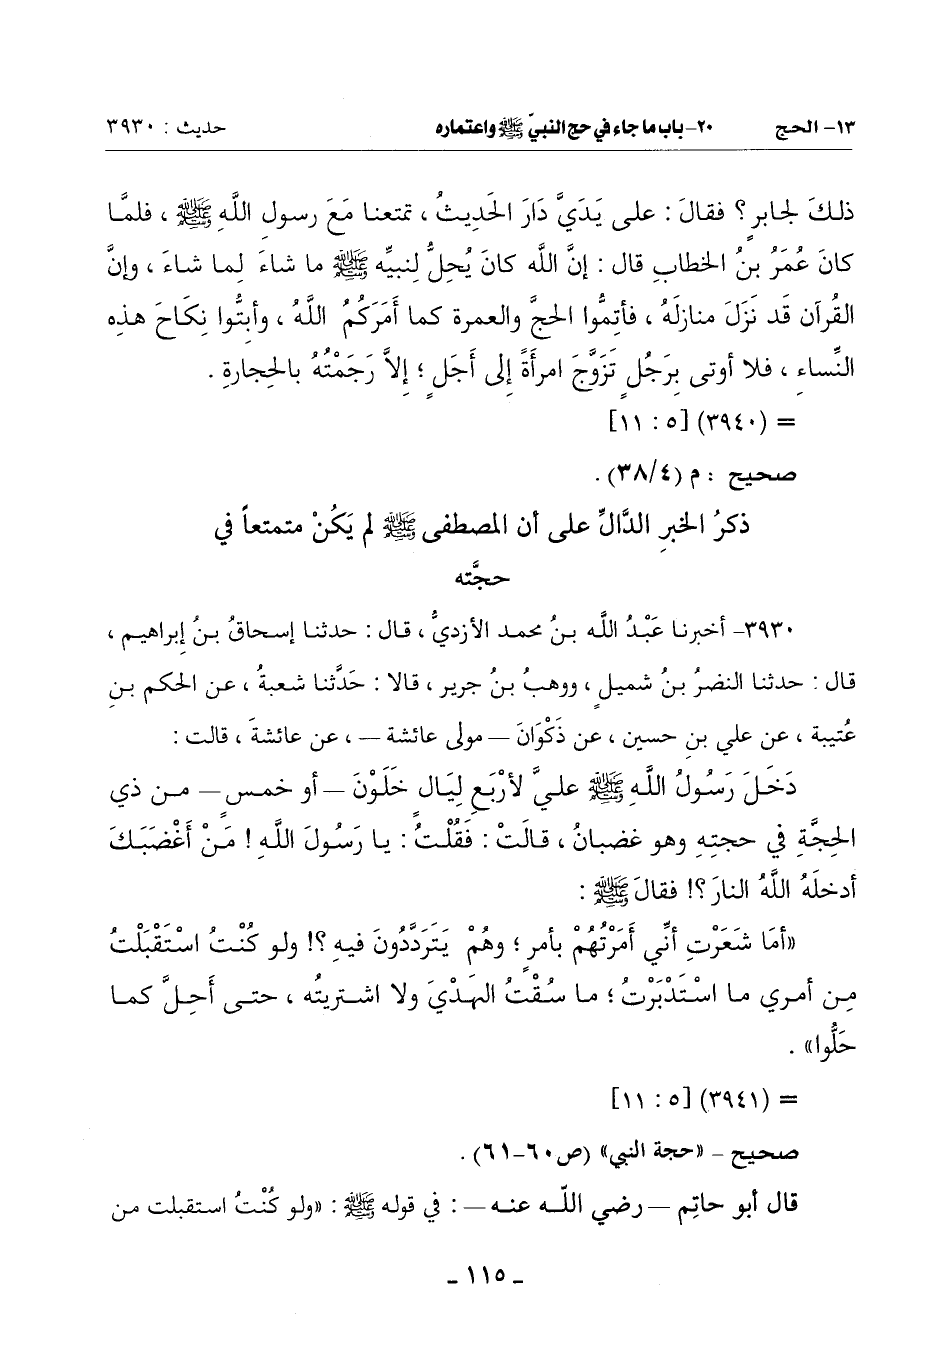 ١٣- الحج ٢٠- باب ما جاء في حج النبيّ ﷺ واعتماره حديث : ٣٩٣٠
ذلكَ لجابرٍ ؟ فقالَ : على يَدَيَّ دَارَ الحَديثُ ، تمتعنا مَعَ رسولِ اللَّهِ ﷺ ، فلمَّا
كانَ عُمَرُ بنُ الخطابِ قال : إنَّ الله كانَ يُحِلُّ لِنبيِّه ﷺ ما شاءَ لِما شاءَ ، وإنَّ
القُرآن قَد نَزَلَ منازلَهُ ، فأتِمُّوا الحجَّ والعمرة كما أمَرَكُمُ اللَّهُ ، وأبتُّوا نِكَاحَ هذهِ
النِّساءِ ، فلا أوتى بِرَجُلٍ تَزَوَّجَ امرأَةً إلى أَجَلٍ ؛ إلاَّ رَجَمْتُهُ بالحِجارةِ .
= (٣٩٤٠) [٥ : ١١]
صحيح : م (٣٨/٤) .
ذكرُ الخبرِ الدَّالِّ على أن المصطفى ﷺ لم يَكُنْ متمتعاً في
حجَّته
٣٩٣٠- أخبرنا عَبْدُ اللَّه بنُ محمد الأزديُّ ، قال : حدثنا إسحاقُ بنُ إبراهيم ،
قال : حدثنا النضرُ بنُ شميلٍ ، ووهبُ بنُ جرير ، قالا : حَدَّثنا شعبةُ ، عن الحكم بنِ
عُتيبة ، عن علي بنِ حسين ، عن ذَكْوَانَ – مولى عائشة – ، عن عائشةَ ، قالت :
دَخَلَ رَسُولُ اللَّهِ ﷺ عليَّ لأرْبَعِ لِيَالٍ خَلَوْنَ – أو خمسٍ – من ذي
الحِجَّةِ في حجتِهِ وهو غضبانُ ، قالَتْ : فَقُلْتُ : يا رَسُولَ اللَّهِ ! مَنْ أَغْضَبَكَ
أدخلَهُ اللَّهُ النارَ ؟! فقالَ ﷺ :
«أمَا شَعَرْتِ أنِّي أَمَرْتُهُمْ بأمرٍ ؛ وهُمْ يَتَرَدَّدُونَ فيهِ ؟! ولو كُنْتُ اسْتَقْبَلْتُ
مِن أمري ما اسْتَدْبَرْتُ ؛ ما سُقْتُ الهَدْيَ ولا اشتريتُه ، حتى أَحِلَّ كما
حَلُّوا» .
= (٣٩٤١) [٥ : ١١]
صحيح – «حجة النبي» (ص٦٠-٦١) .
قال أبو حاتِم – رضي اللّه عنه – : في قوله ﷺ : «ولو كُنْتُ استقبلت من
- ١١٥ -